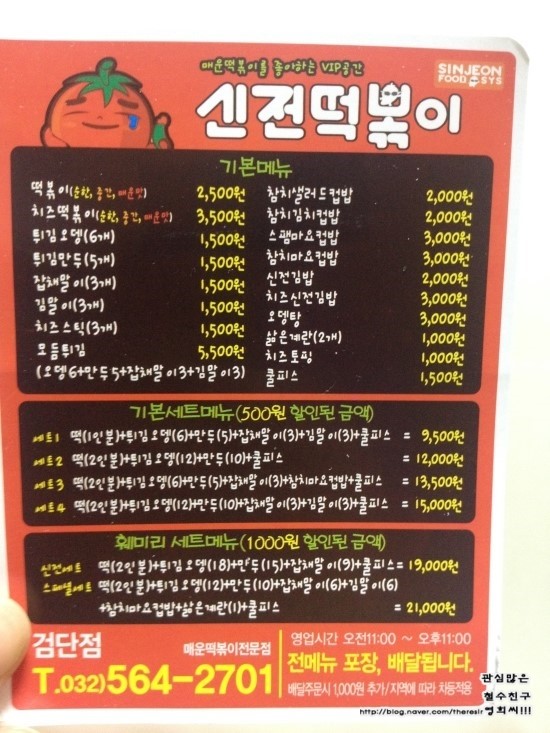 매운떡볶이를 좋아하는 VIP공간
SINJEON
FOOD SYS
신전떡볶이
기본메뉴
떡볶이(순한, 중간, 매운맛) 2,500원
치즈떡볶이(순한, 중간, 매운맛) 3,500원
튀김오뎅(6개) 1,500원
튀김만두(5개) 1,500원
잡채말이(3개) 1,500원
김말이(3개) 1,500원
치즈스틱(3개) 1,500원
모듬튀김 5,500원
(오뎅6+만두5+잡채말이3+김말이3)
참치샐러드컵밥 2,000원
참치김치컵밥 2,000원
스팸마요컵밥 3,000원
참치마요컵밥 3,000원
신전김밥 2,000원
치즈신전김밥 3,000원
오뎅탕 3,000원
삶은계란(2개) 1,000원
치즈토핑 1,000원
쿨피스 1,500원
기본세트메뉴(500원 할인된 금액)
세트1 떡(1인분)+튀김오뎅(6)+만두(5)+잡채말이(3)+김말이(3)+쿨피스 = 9,500원
세트2 떡(2인분)+튀김오뎅(12)+만두(10)+쿨피스 = 12,000원
세트3 떡(2인분)+튀김오뎅(6)+만두(5)+잡채말이(3)+참치마요컵밥+쿨피스 = 13,500원
세트4 떡(2인분)+튀김오뎅(12)+만두(10)+잡채말이(3)+김말이(3)+쿨피스 = 15,000원
훼미리 세트메뉴(1000원 할인된 금액)
신전세트 떡(2인분)+튀김오뎅(18)+만두(15)+잡채말이(9)+쿨피스= 19,000원
스페셜세트 떡(2인분)+튀김오뎅(12)+만두(10)+잡채말이(6)+김말이(6)
+참치마요컵밥+삶은계란(1)+쿨피스 = 21,000원
검단점 매운떡볶이전문점
T.032)564-2701
영업시간 오전11:00 ~ 오후11:00
전메뉴 포장, 배달됩니다.
배달주문시 1,000원 추가/지역에 따라 차등적용
관심많은
철수친구
영희씨!!!
http://blog.naver.com/theresir